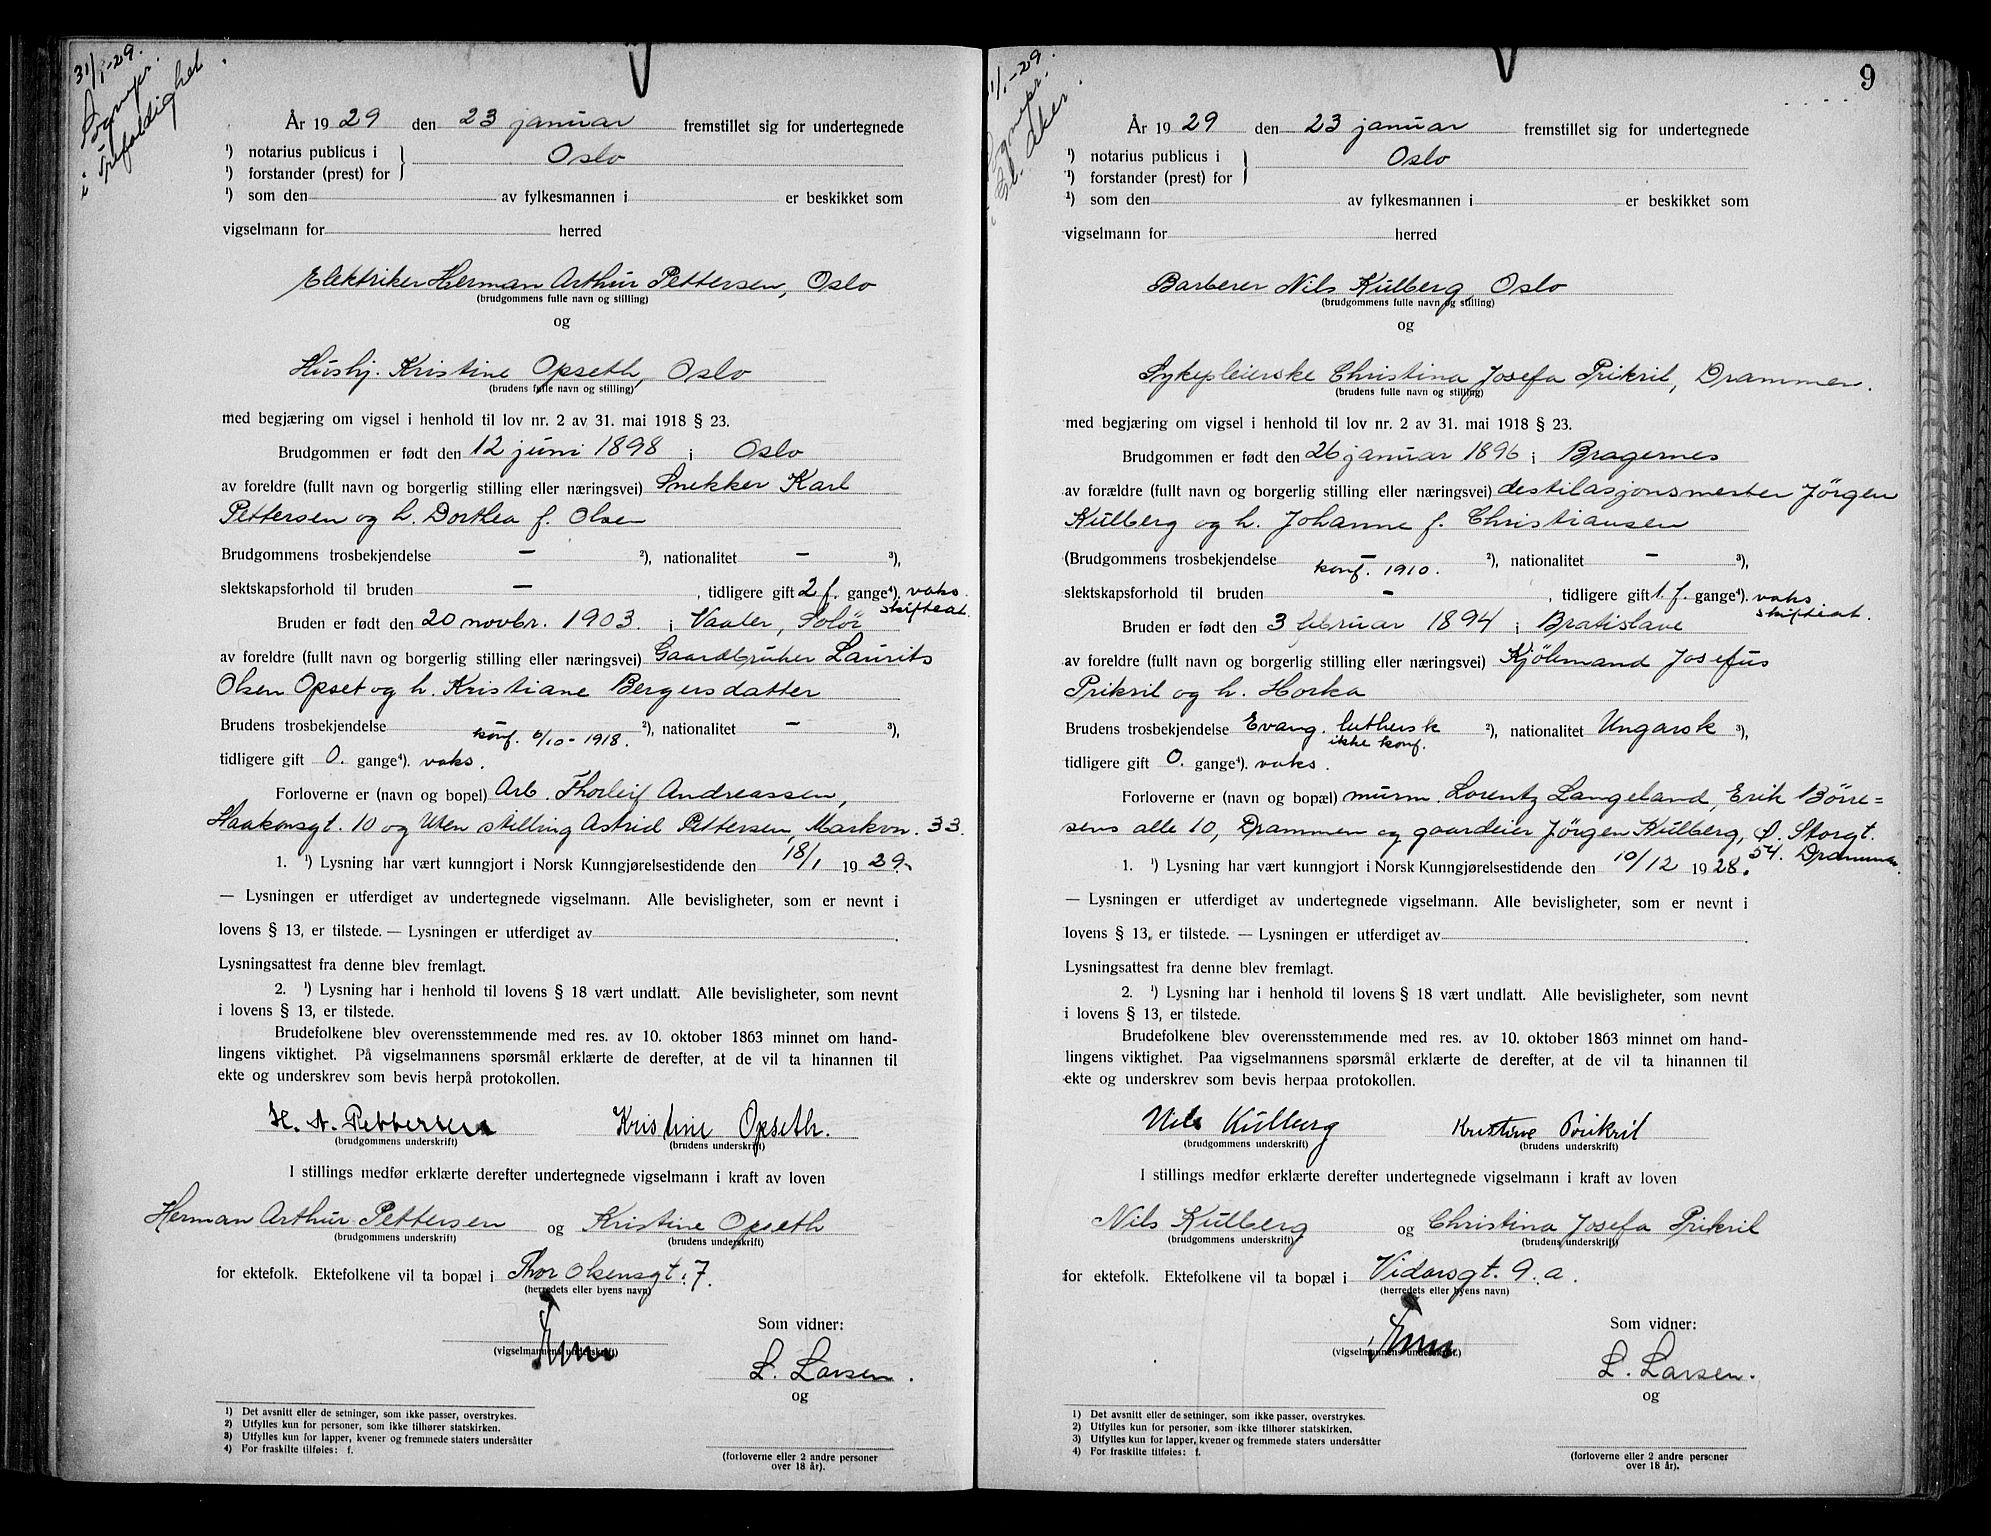 31/1-29.
Sognepr.
i Trefoldighet.
År 1929 den 23 januar fremstillet sig for undertegnede
¹) notarius publicus i } Oslo
¹) forstander (prest) for
¹) som den av fylkesmannen i er beskikket som
vigselmann for herred
Elektriker Herman Arthur Pettersen, Oslo
(brudgommens fulle navn og stilling)
og
Hushj. Kristine Opseth, Oslo
(brudens fulle navn og stilling)
med begjæring om vigsel i henhold til lov nr. 2 av 31. mai 1918 § 23.
Brudgommen er født den 12 juni 1898 i Oslo
av foreldre (fullt navn og borgerlig stilling eller næringsvei) Snekker Karl
Pettersen og h. Dorthea f. Olsen
Brudgommens trosbekjendelse – ²), nationalitet – ³),
slektskapsforhold til bruden – , tidligere gift 2 f. gange⁴). voks.
skifteat.
Bruden er født den 20 novbr. 1903. i Vaaler, Solör
av foreldre (fullt navn og borgerlig stilling eller næringsvei) Gaardbruker Laurits
Olsen Opset og h. Kristiane Bergersdatter
Brudens trosbekjendelse – ²), nationalitet – ³),
konf. 6/10-1918.
tidligere gift 0. gange⁴). voks.
Forloverne er (navn og bopel) Arb. Thorleif Andreassen,
Haakonsgt. 10 og Uten stilling Astrid Pettersen, Markvn. 33.
1. ¹) Lysning har vært kunngjort i Norsk Kunngjørelsestidende den 18/1 1929.
— Lysningen er utferdiget av undertegnede vigselmann. Alle bevisligheter, som er nevnt i
lovens § 13, er tilstede. — Lysningen er utferdiget av .
Lysningsattest fra denne blev fremlagt.
2. ¹) Lysning har i henhold til lovens § 18 vært undlatt. Alle bevisligheter, som nevnt
i lovens § 13, er tilstede.
Brudefolkene blev overensstemmende med res. av 10. oktober 1863 minnet om hand-
lingens viktighet. På vigselmannens spørsmål erklærte de derefter, at de vil ta hinannen til
ekte og underskrev som bevis herpå protokollen.
H. A. Pettersen Kristine Opseth.
(brudgommens underskrift) (brudens underskrift)
I stillings medfør erklærte derefter undertegnede vigselmann i kraft av loven
Herman Arthur Pettersen og Kristine Opseth
(brudgommens underskrift) (brudens underskrift)
for ektefolk. Ektefolkene vil ta bopæl i Thor Olsensgt. 7.
(herredets eller byens navn)
Som vidner:
(vigselmannens underskrift)
L. Larsen.
og
1) Det avsnitt eller de setninger, som ikke passer, overstrykes.
2) Utfylles kun for personer, som ikke tilhører statskirken.
3) Utfylles kun for lapper, kvener og fremmede staters undersåtter
4) For fraskilte tilføies: f.
(forloverne eller 2 andre personer
over 18 år).
9
1/1-29.
Sognepr.
i Ø. Aker.
År 1929 den 23 januar fremstillet sig for undertegnede
¹) notarius publicus i } Oslo
¹) forstander (prest) for
¹) som den av fylkesmannen i er beskikket som
vigselmann for herred
Barberer Nils Kulberg, Oslo
(brudgommens fulle navn og stilling)
og
Sykepleierske Christina Josefa Prikril, Drammen.
(brudens fulle navn og stilling)
med begjæring om vigsel i henhold til lov nr. 2 av 31. mai 1918 § 23.
Brudgommen er født den 26 januar 1896 i Bragernes
av forældre (fullt navn og borgerlig stilling eller næringsvei) destilasjonsmester Jörgen
Kulberg og h. Johanne f. Christiansen
(Brudgommens trosbekjendelse – ²), nationalitet – ³),
konf. 1910.
slektskapsforhold til bruden – , tidligere gift 1. f. gange⁴). voks
skifteat.
Bruden er født den 3 februar 1894 i Bratislave
av foreldre (fullt navn og borgerlig stilling eller næringsvei) Kjöbmand Josefus
Prikril og h. Horka
Brudens trosbekjendelse Evang. luthersk ²), nationalitet Ungarsk ³),
ikke konf.
tidligere gift 0. gange⁴). voks.
Forloverne er (navn og bopæl) murm. Lorentz Langeland, Erik Börre=
sens alle 10, Drammen og gaardeier Jörgen Kulberg, Ø. Storgt.
54. Drammen.
1. ¹) Lysning har vært kunngjort i Norsk Kunngjørelsestidende den 10/12 1928.
— Lysningen er utferdiget av undertegnede vigselmann. Alle bevisligheter, som er nevnt i
lovens § 13, er tilstede. — Lysningen er utferdiget av .
Lysningsattest fra denne blev fremlagt.
2. ¹) Lysning har i henhold til lovens § 18 vært undlatt. Alle bevisligheter, som nevnt
i lovens § 13, er tilstede.
Brudefolkene blev overensstemmende med res. av 10. oktober 1863 minnet om hand-
lingens viktighet. Paa vigselmannens spørsmål erklærte de derefter, at de vil ta hinannen til
ekte og underskrev som bevis herpaa protokollen.
Nils Kulberg Kristine Prikril
(brudgommens underskrift) (brudens underskrift)
I stillings medfør erklærte derefter undertegnede vigselmann i kraft av loven
Nils Kulberg og Christina Josefa Prikril
(brudgommens underskrift) (brudens underskrift)
for ektefolk. Ektefolkene vil ta bopæl i Vidarsgt. 9. a.
(herredets eller byens navn)
Som vidner:
(vigselmannens underskrift.)
L. Larsen.
og
1) Det avsnitt eller de setninger, som ikke passer, overstrykes.
2) Utfylles kun for personer, som ikke tilhører statskirken.
3) Utfylles kun for lapper, kvener og fremmede staters undersåtter
4) For fraskilte tilføies: f.
(forloverne eller 2 andre personer
over 18 år).